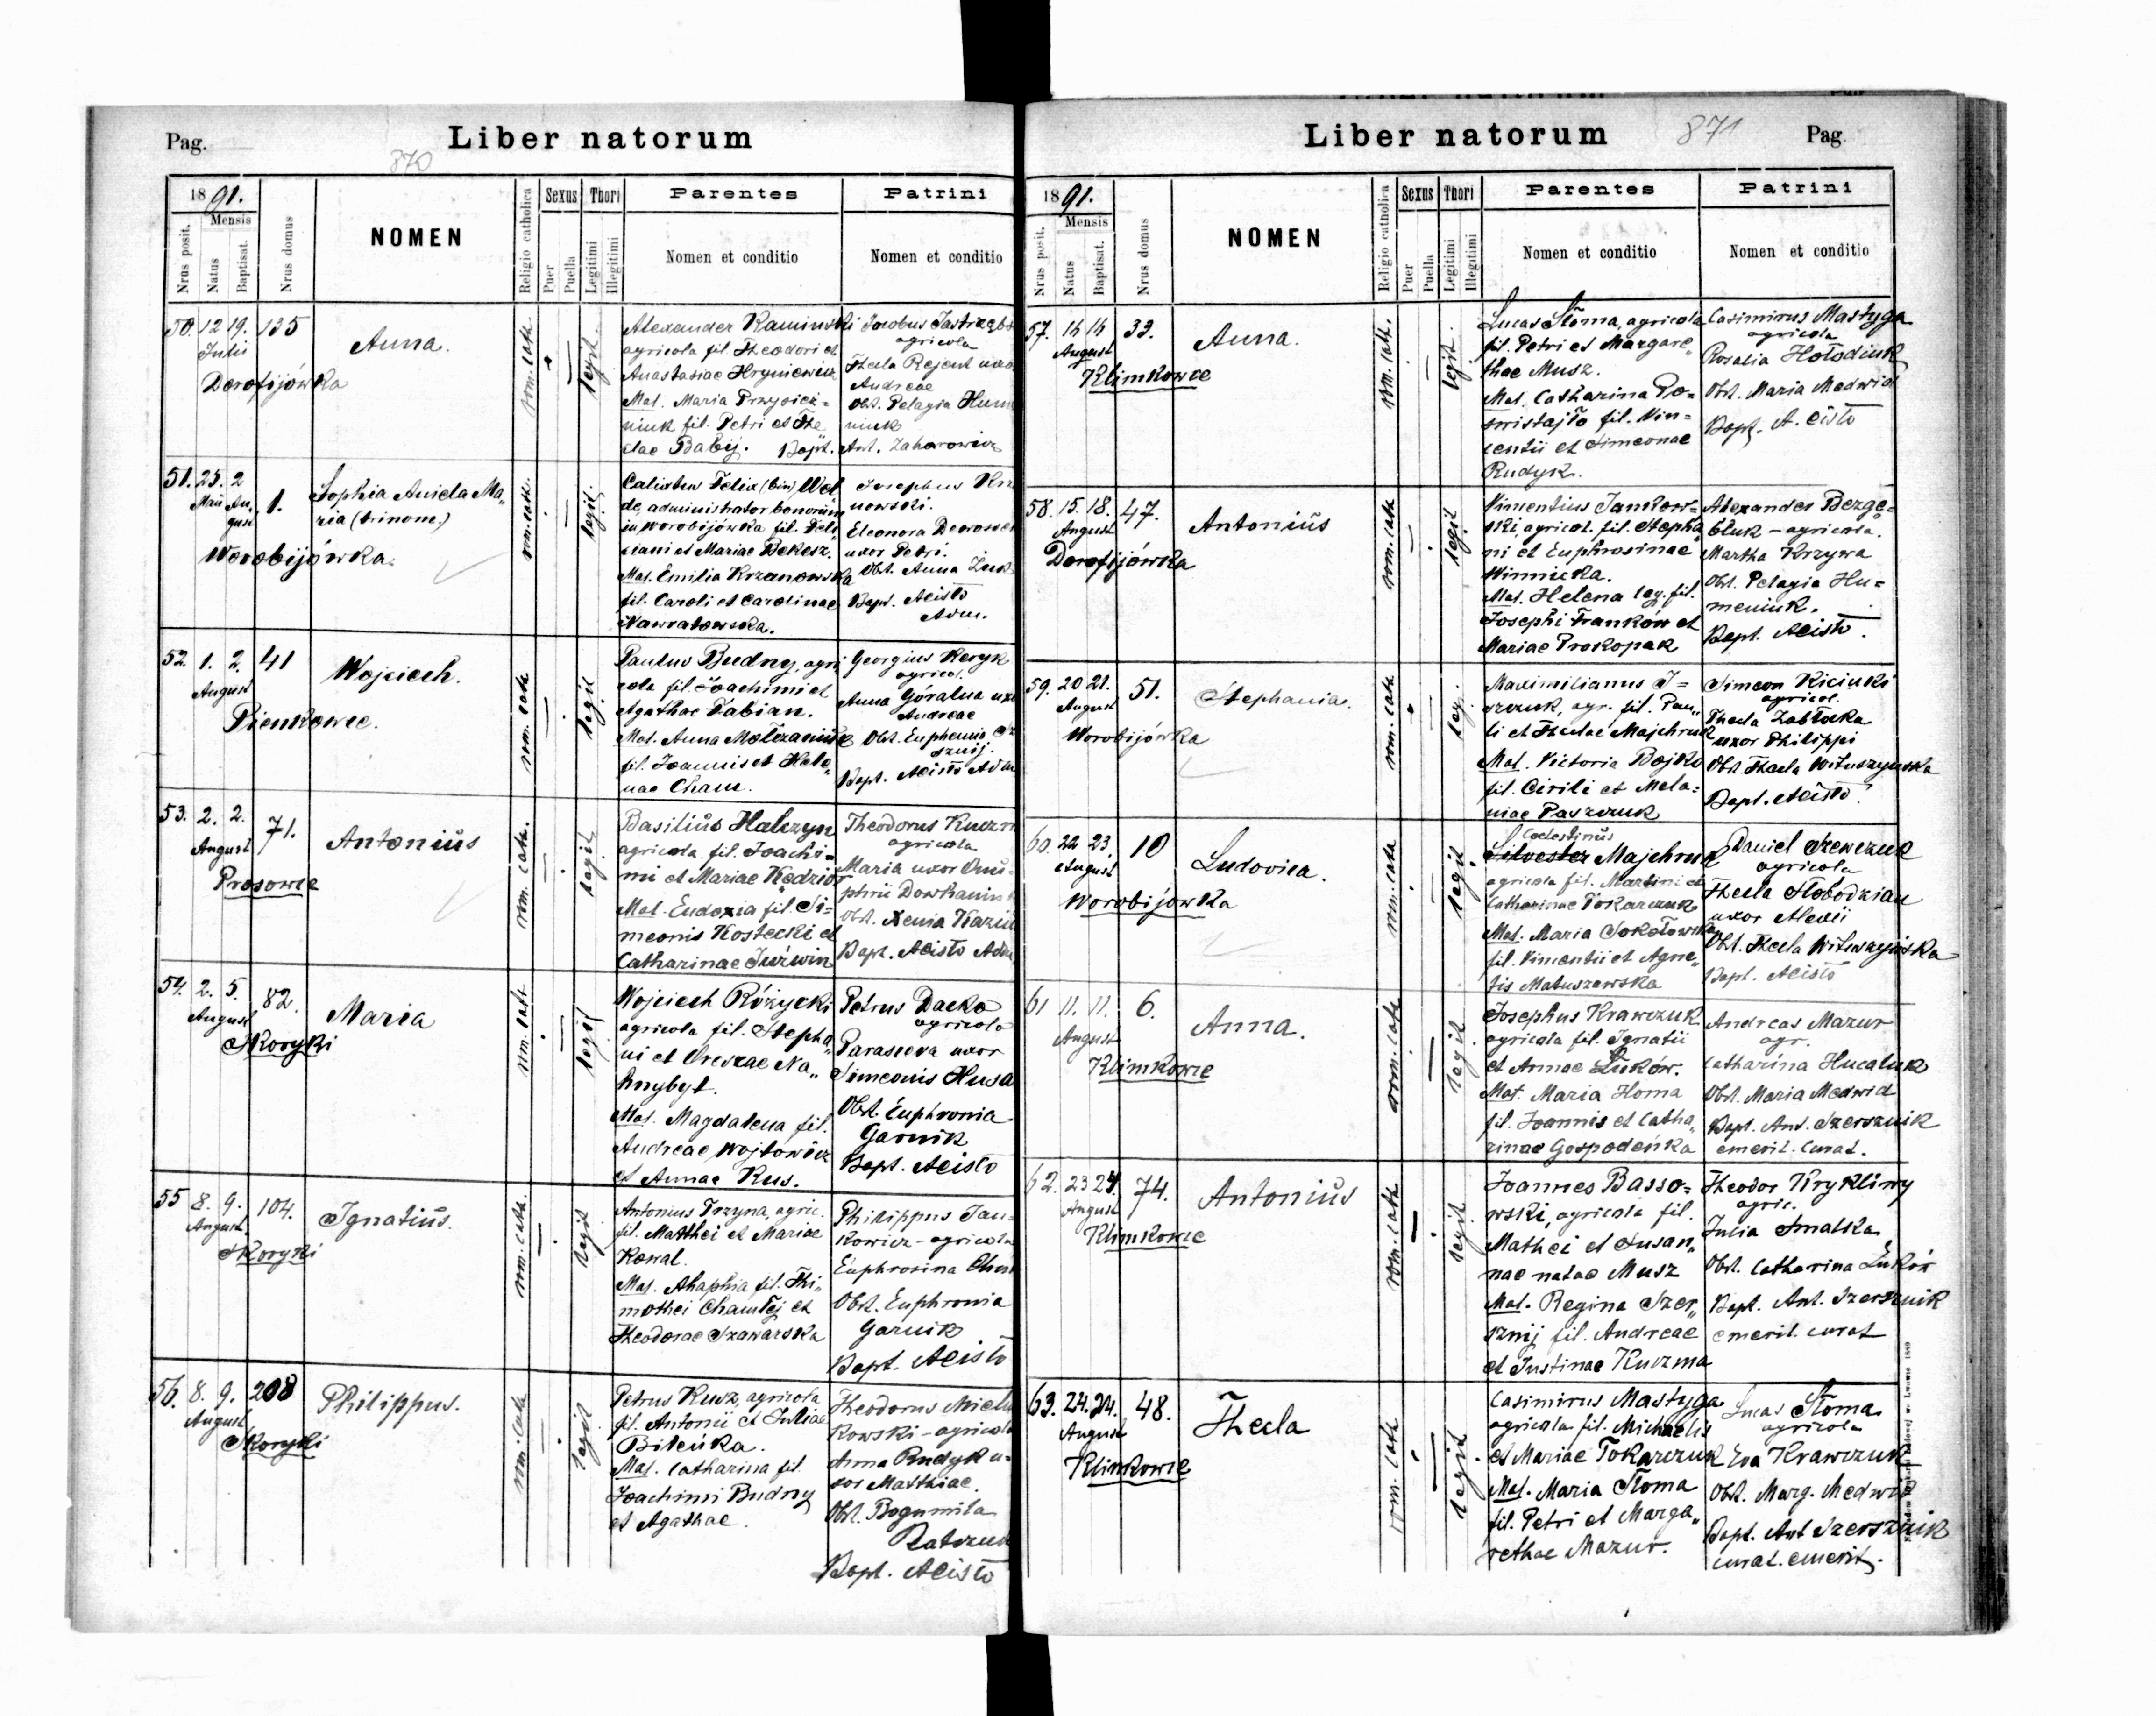 Pag.
Liber natorum
870
1891.
Mensis
Nrus posit.
Natus
Baptisat.
Nrus domus
NOMEN
Religio catholica
Sexus
Puer
Puella
Thori
Legitimi
Illegitimi
Parentes
Nomen et conditio
Patrini
Nomen et conditio
50. 12 19. 135
Julii
Dorofijówka
Anna.
rom. cat.
legit.
Alexander Kaminski
agricola fil. Theodori et
Anastasiae Hryniewicz
Mat. Maria Przysiez=
niuk fil. Petri et The
clae Babij. Bapt.
Jacobus Jastrzębs
agricola
Thecla Rejent uxor
Andreae
Obst. Pelagia Hume
niuk
Ant. Zaharowicz
51. 25. 2 1.
Maii August
Worobijówka.
Sophia Aniela Ma„
ria (trinom.)
rom. cath.
legit.
Calixtus Felix (bin)
de, administrator bonorum
in Worobijówka fil. Feli
ciani et Mariae Bekesz.
Mat. Emilia Krzanowska
fil. Caroli et Carolinae
Nawratowska.
Josephus Krza
nowski.
Eleonora
uxor Petri.
Obst. Anna
Bapt. Acisto
Adm.
52. 1. 2. 41
August
Pienkowce.
Wojciech.
rom. cath
legit
Paulus Budny, agri
cola fil. Joachimi et
Agathae Fabian.
Mat. Anna
fil. Joannis et Hele„
nae Cham.
Georgius Keryk
agricol.
Anna Góralna uxor
Andreae
Obst. Euphemia
Bapt. Acisto Adm
53. 2. 2. 71.
August
Prosowce
Antonius
rom. cath.
legit
Basilius Halczyn
agricola fil. Joachi=
mi et Mariae Kędzior
Mat. Eudoxia fil. Si=
meonis Kostecki et
Catharinae Juźwin
Theodorus Kuzm
agricola
Maria uxor Onu=
phrii
Obst. Xenia
Bapt. Acisto Adm.
54. 2. 5. 82.
August
Skoryki
Maria
rom. cath
legit
Wojciech Różycki
agricola fil. Stepha„
ni et Na„
hnybyt.
Mat. Magdalena fil.
Andreae Wojtowicz
et Annae Kus.
Petrus Dacko
agricola
Parasceva uxor
Simeonis Husa
Obst. Euphronia
Garnik
Bapt. Acisto
55 8. 9. 104.
August
Skoryki
Ignatius.
rom. cath.
legit
Antonius Trzyna, agric.
fil. Matthei et Mariae
Kowal.
Mat. Ahaphia fil. Thi„
mothei et
Theodorae Szawarska
Philippus Jan=
kowicz - agricola
Euphrosina
Obst. Euphronia
Garnik
Bapt. Acisto
56. 8. 9. 208
August
Skoryki
Philippus.
rom. cath
legit
Petrus Kusz, agricola
fil. Antonii et Juliae
Bileńka.
Mat. Catharina fil.
Joachimi Budny
et Agathae.
Theodorus
kowski - agricola
Anna Rudyk u=
xor Matthiae.
Obst. Bogumila
Bapt. Acisto
Liber natorum
871
Pag.
1891.
Mensis
Nrus posit.
Natus
Baptisat.
Nrus domus
NOMEN
Religio catholica
Sexus
Puer
Puella
Thori
Legitimi
Illegitimi
Parentes
Nomen et conditio
Patrini
Nomen et conditio
57. 16 16 32.
August
Klimkowce
Anna.
rom. cat.
legit.
Lucas Słoma, agricola
fil. Petri et Margare„
thae Musz.
Mat. Catharina Po=
swistajło fil. Vin=
centii et Simeonae
Rudyk.
Casimirus Mastyga
agricola
Rosalia Hołodiuk
Obst. Maria Medwid
Bapt. Acisto
58. 15. 18. 47.
August
Dorofijówka
Antonius
rom. cath
legit
Vincentius Jankow=
ski, agricol. fil. Stepha
ni et Euphrosinae
Winnicka.
Mat. Helena leg. fil.
Josephi Franków et
Mariae Prokopak
Alexander Bezge=
bluk - agricola.
Martha Krzywa
Obst. Pelagia Hu=
meniuk.
Bapt. Acisto.
59. 20 21. 51.
August
Worobijówka
Stephania.
rom. cath
leg.
Maximilianus I=
szczuk, agr. fil. Pau„
li et Theclae Majchruk
Mat. Victoria Bojko
fil. Cirili et Mela=
niae Paszczuk
Simeon Kiciuki
agricol.
Thecla Zabłocka
uxor Philippi
Obst. Thecla Wituszyńska
Bapt. Acisto.
60. 22 23 10
August
Worobijówka
Ludovica.
rom. cath
legit
Coelestinus
Silvester Majchruk
agricola fil. Martini et
Catharinae Tokarczuk
Mat. Maria Sokołowska
fil. Vincentii et Agne„
tis Matuszewska
Daniel Szewczuk
agricola
Thecla Słobodzian
uxor Alexii
Obst. Thecla Wituszyńska
Bapt. Acisto
61 11. 11. 6.
August
Klimkowce
Anna.
rom. cath
legit
Josephus Krawczuk
agricola fil. Ignatii
et Annae Łuków.
Mat. Maria Homa
fil. Joannis et Catha„
rinae Gospodeńka
Andreas Mazur
agr.
Catharina Hucaluk
Obst. Maria Medwid
Bapt. Ant. Szersznik
emerit. Curat.
62. 23 24. 74.
August
Klimkowce
Antonius
rom. cath
legit
Joannes Basso=
wski, agricola fil.
Mathei et Susan„
nae natae Musz
Mat. Regina Szer„
sznij fil. Andreae
et Justinae Kuczma
Theodor Krykliwy
agric.
Julia Smalska
Obst. Catharina Łuków
Bapt. Ant. Szersznik
emerit. curat
63. 24. 24. 48.
August
Klimkowce
Thecla
rom. cath
legit
Casimirus Mastyga
agricola fil. Michaelis
et Mariae Tokarczuk
Mat. Maria Słoma
fil. Petri et Marga„
rethae Mazur.
Lucas Słoma
agricola
Eva Krawczuk
Obst. Marg. Medwid
Bapt. Ant Szersznik
curat. emerit.